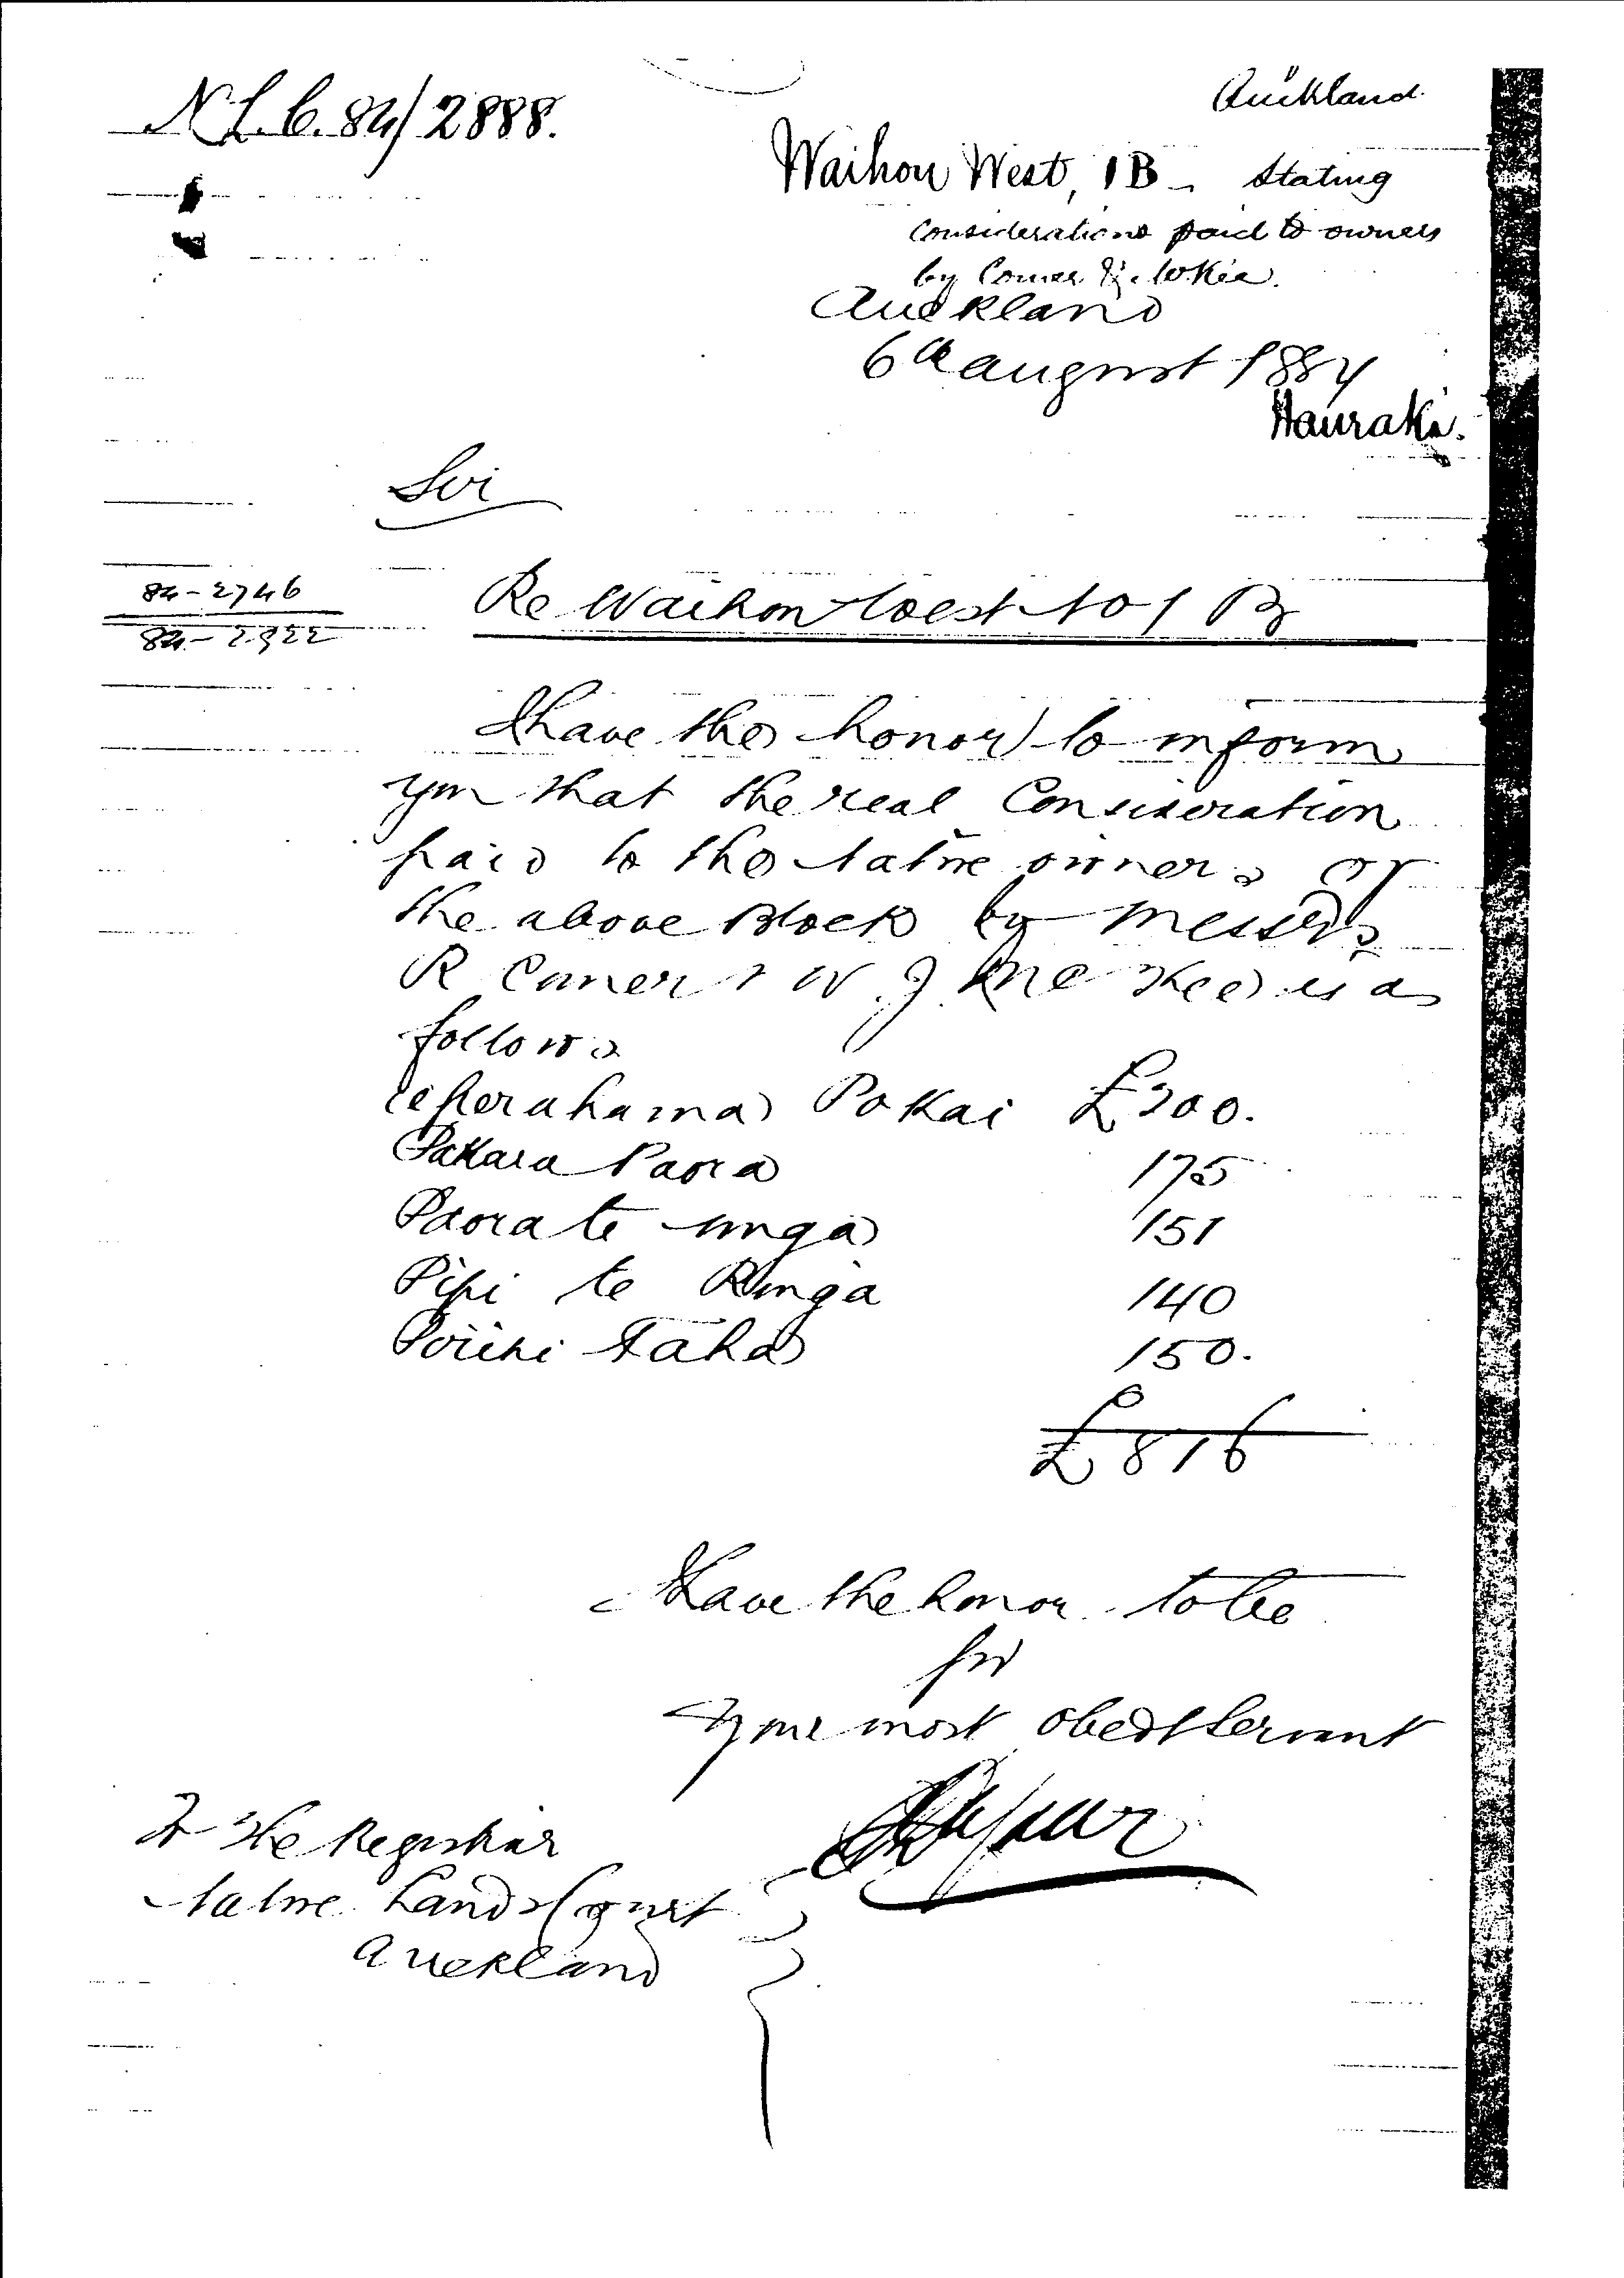 Auckland.
N.L.C. 84/2888.
Waihou West, 1B - Stating
considerations paid to owners
by Comer & McKee.
Auckland
6th august 1884
Hauraki.
Sir
84-2746
84-2922
Re Waihou West No 1 B
I have the honor to inform
you that the real Consideration
paid to the Native owners of
the above Block by Messrs
R Comer & W. J McKee is as
follows
Reperahama Pokai £200.
Pakara Paora 175
Paora te unga 151
Pipi te Runga 140
Poriki Taha 150.
£816
I Have the honor to be
Sir
your most obedt Servant
To The Registrar
Native Lands Court
Auckland